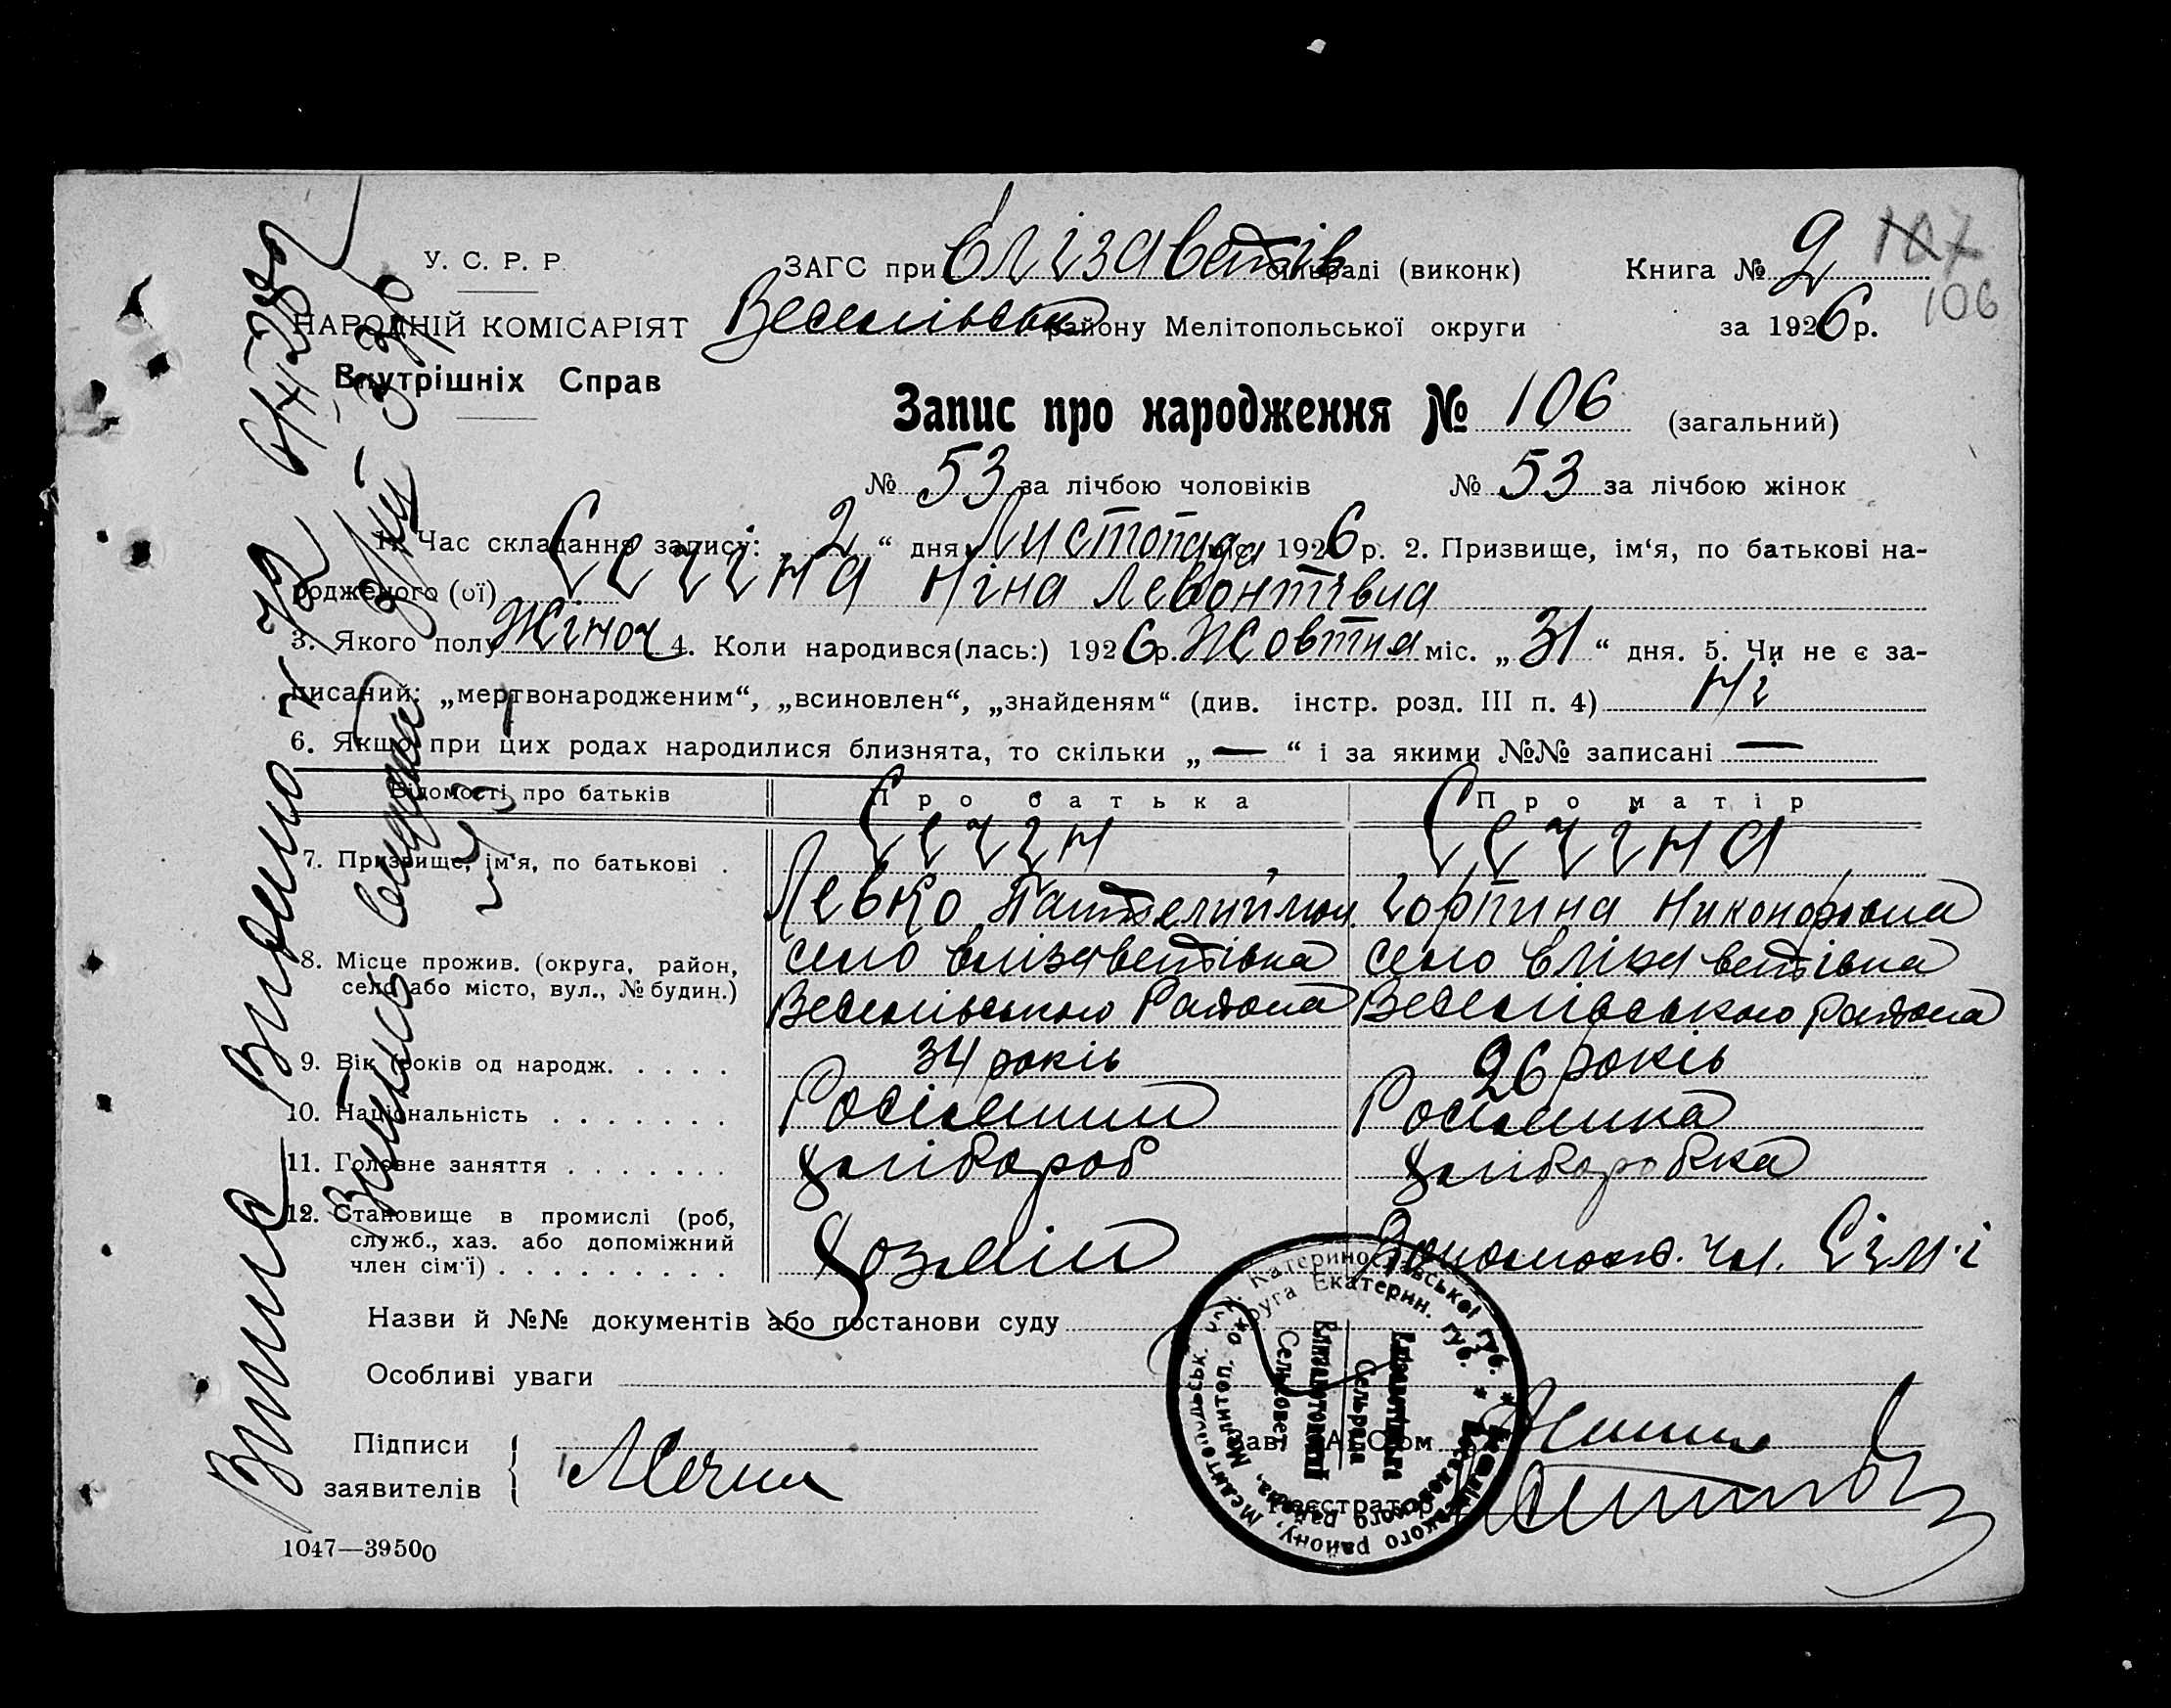 У. С. Р. Р.
НАРОДНІЙ КОМІСАРІЯТ
Внутрішніх Справ
ЗАГС при Єлізаветів сільраді (виконк)
Веселівськ району Мелітопольської округи
Книга № 2 107
106
за 1926 р.
Запис про народження № 106 (загальний)
№ 53 за лічбою чоловіків № 53 за лічбою жінок
1. Час складання запису: „2“ дня Листопада 1926 р. 2. Призвище, ім‘я, по батькові на-
родженого (ої) Сечіна Ніна Левонтівна
3. Якого полу Жіноч 4. Коли народився(лась:) 1926 р. Жовтня міс. „31“ дня. 5. Чи не є за-
писаний: „мертвонародженим“, „всиновлен“, „знайденям“ (див. інстр. розд. III п. 4) Ні
6. Якщо при цих родах народилися близнята, то скільки „—“ і за якими №№ записані —
Відомості про батьків Про батька Про матір
Сечін Сечіна
7. Призвище, ім‘я, по батькові . Левко Горпина
8. Місце прожив. (округа, район, село Єлізаветівка село Єлізаветівка
село або місто, вул., № будин.) Веселівського Района Веселівського Района
9. Вік (років од народж. . . . . 34 років 26 років
10. Національність . . . . . . . Росіянин Росіянка
11. Головне заняття . . . . . . . Хлібороб Хліборобка
12. Становище в промислі (роб,
служб., хаз. або допоміжний
член сім‘ї) . . . . . . . . . Хозяін Допомож. чл. Сім‘і
Назви й №№ документів або постанови суду
Особливі уваги
Підписи
заявителів
Зав. ЗАГС‘ом
Реєстратор
1047—39500